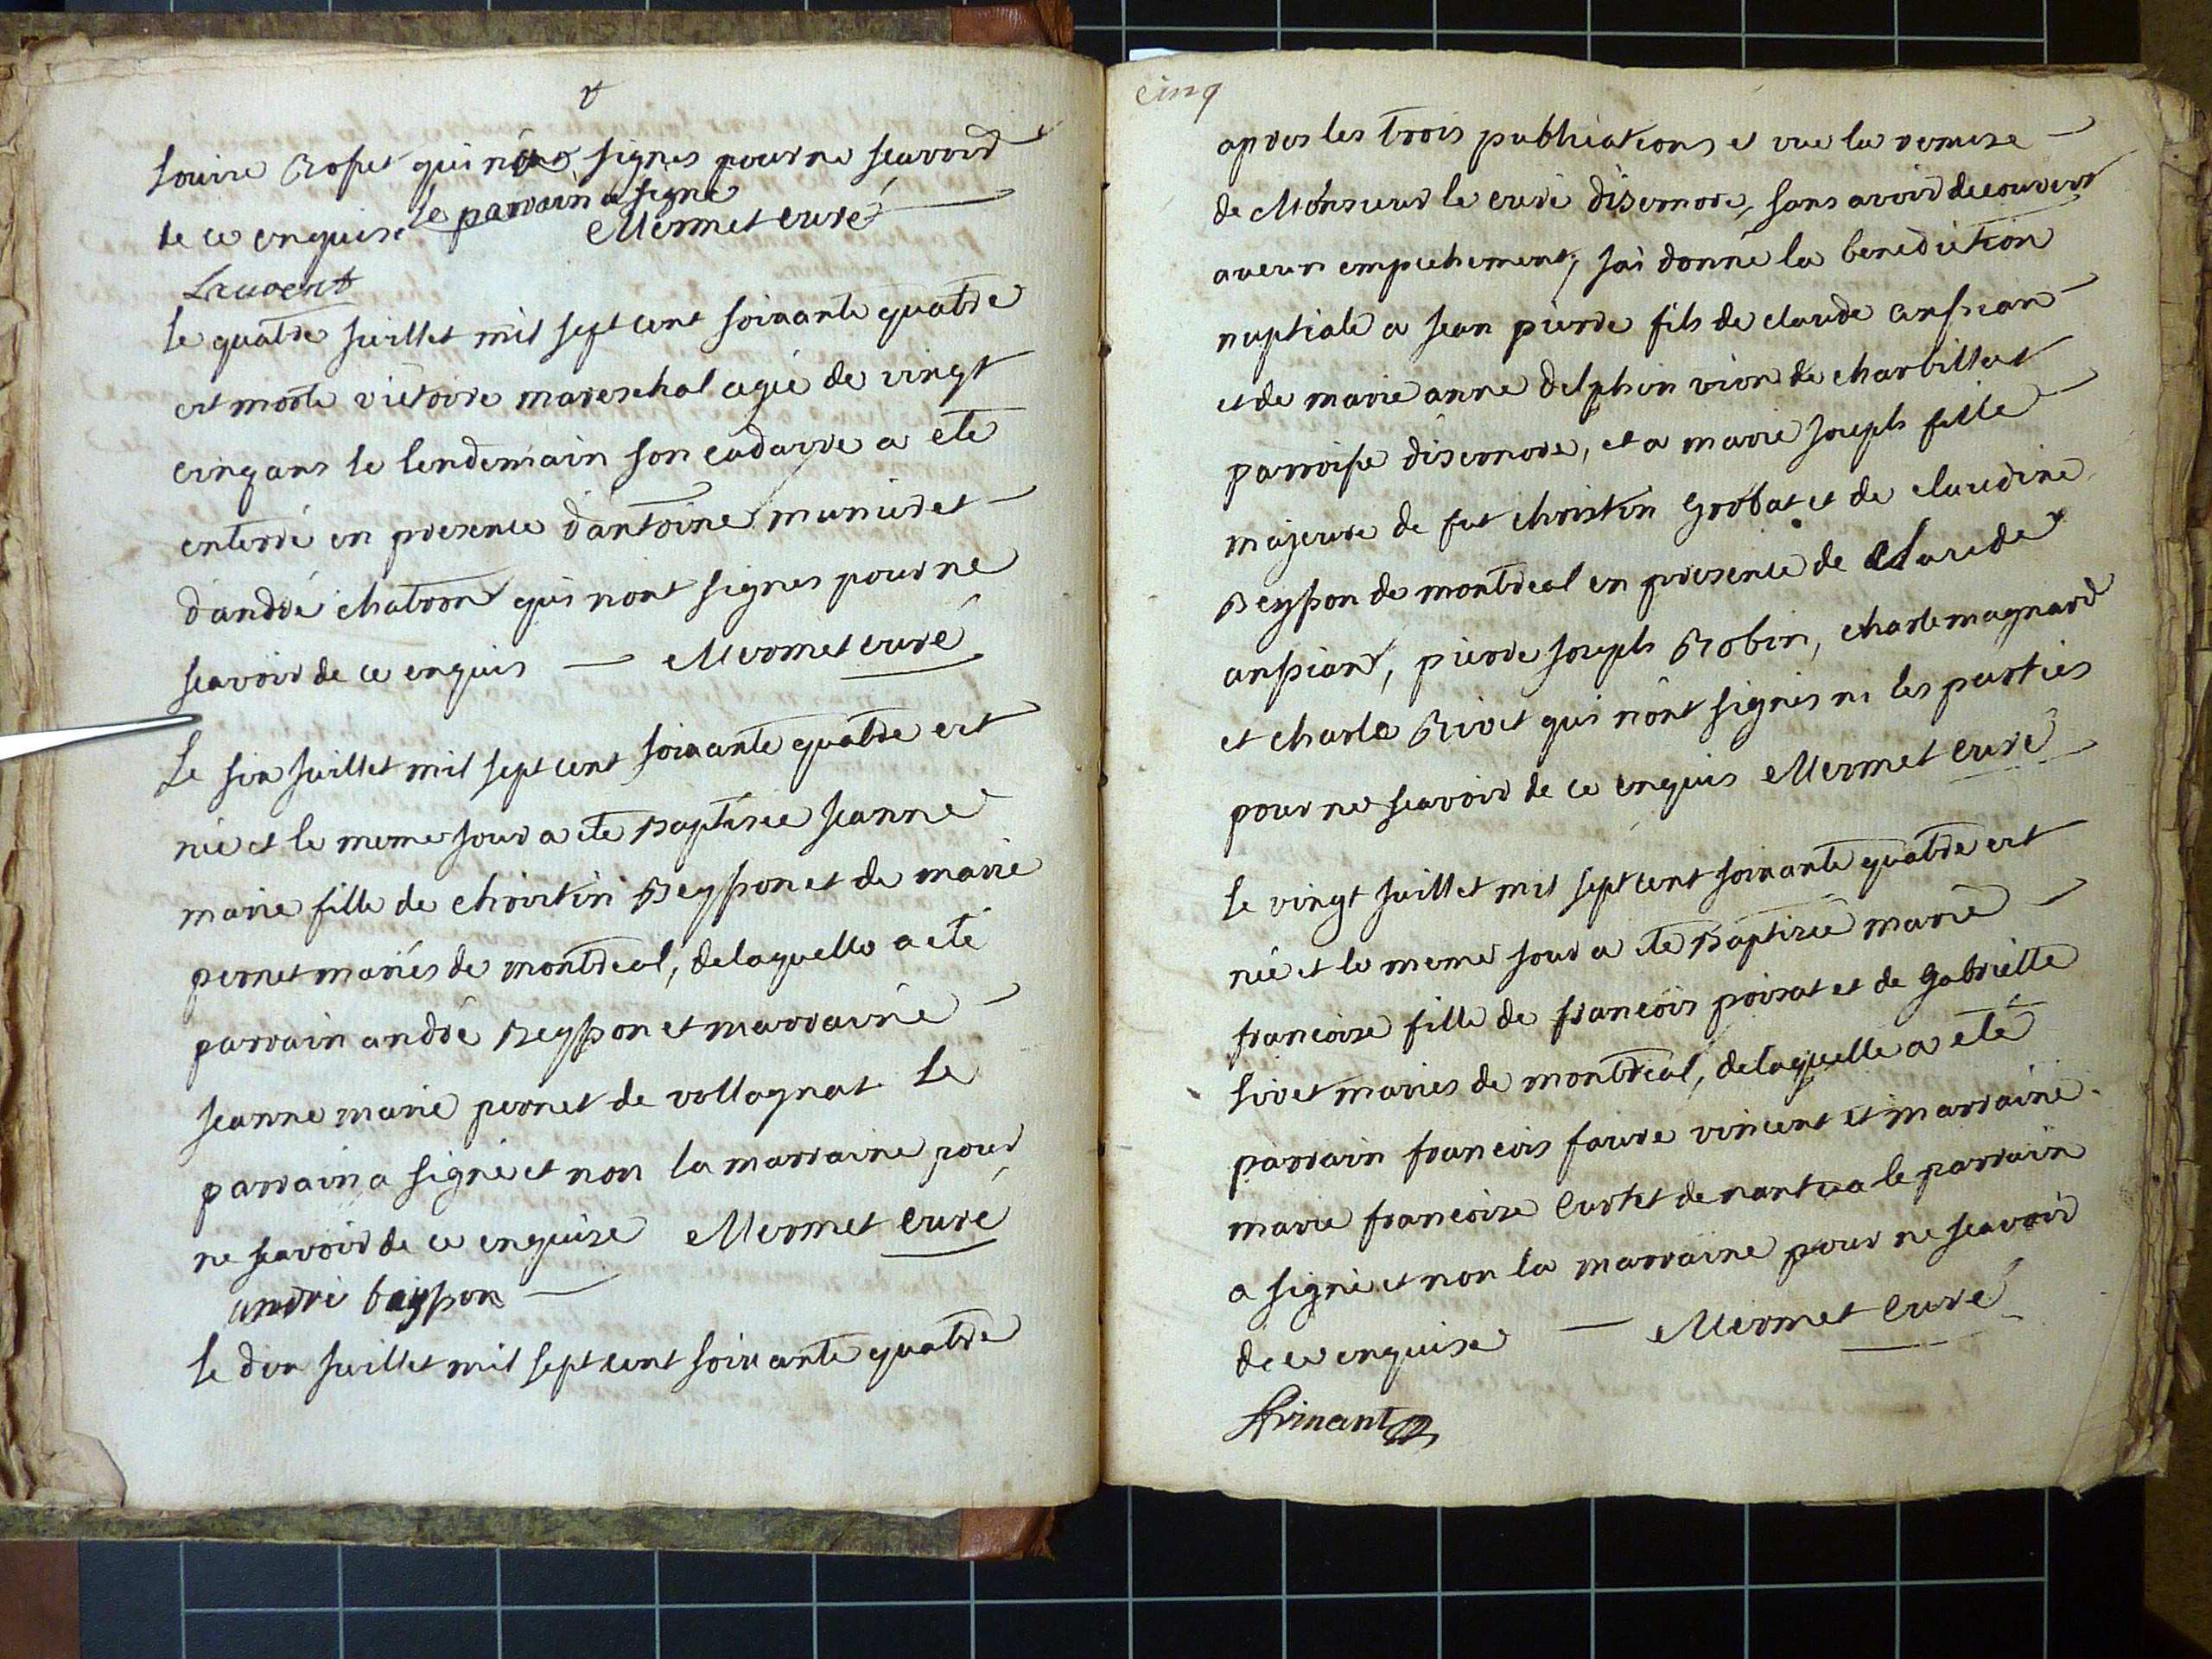 Louise Rosset qui n'a signes pour ne scavoir
de ce enquise le parrain a signe
Mermet curé
Lauvent
le quatre juillet mil sept cent soixante quatre
est morte victoire mareschal agée de vingt
cinq ans le lendemain son cadavre a eté
enterré en presence d'antoine munier et
d'andré chatron qui n'ont signes pour ne
scavoir de ce enquis — Mermet curé
Le six juillet mil sept cent soixante quatre est
née et le meme jour a ete Baptisée jeanne
marie fille de christin Beysson et de marie
pernet mariés de montreal, de laquelle a eté
parrain andré Beysson et marraine
jeanne marie pernet de vollognat le
parrain a signé et non la marraine pour
ne scavoir de ce enquise Mermet curé
andré baysson
le dix juillet mil sept cent soixante quatre
cinq
apres les trois publications et vue la remise
de Monsieur le curé disernore, sans avoir decouvert
aucun empechement, j'ai donné la benediction
nuptiale a jean pierre fils de claude anssian
et de marie anne delphin vion de charbillat
parroisse disernore, et a marie joseph fille
majeure de fut christin Grobat et de claudine
Beysson de montreal en presence de claude
anssian, pierre joseph Robin, charle magnard
et charle Rivet qui n'ont signés ni les parties
pour ne scavoir de ce enquis Mermet curé
le vingt juillet mil sept cent soixante quatre est
née et le meme jour a ete Baptisée marie
francoise fille de francois poisat et de Gabrielle
livet maries de montreal, de laquelle a eté
parrain francois favre vincent et marraine
marie francoise curtet de nantua le parrain
a signé et non la marraine pour ne scavoir
de ce enquise — Mermet curé